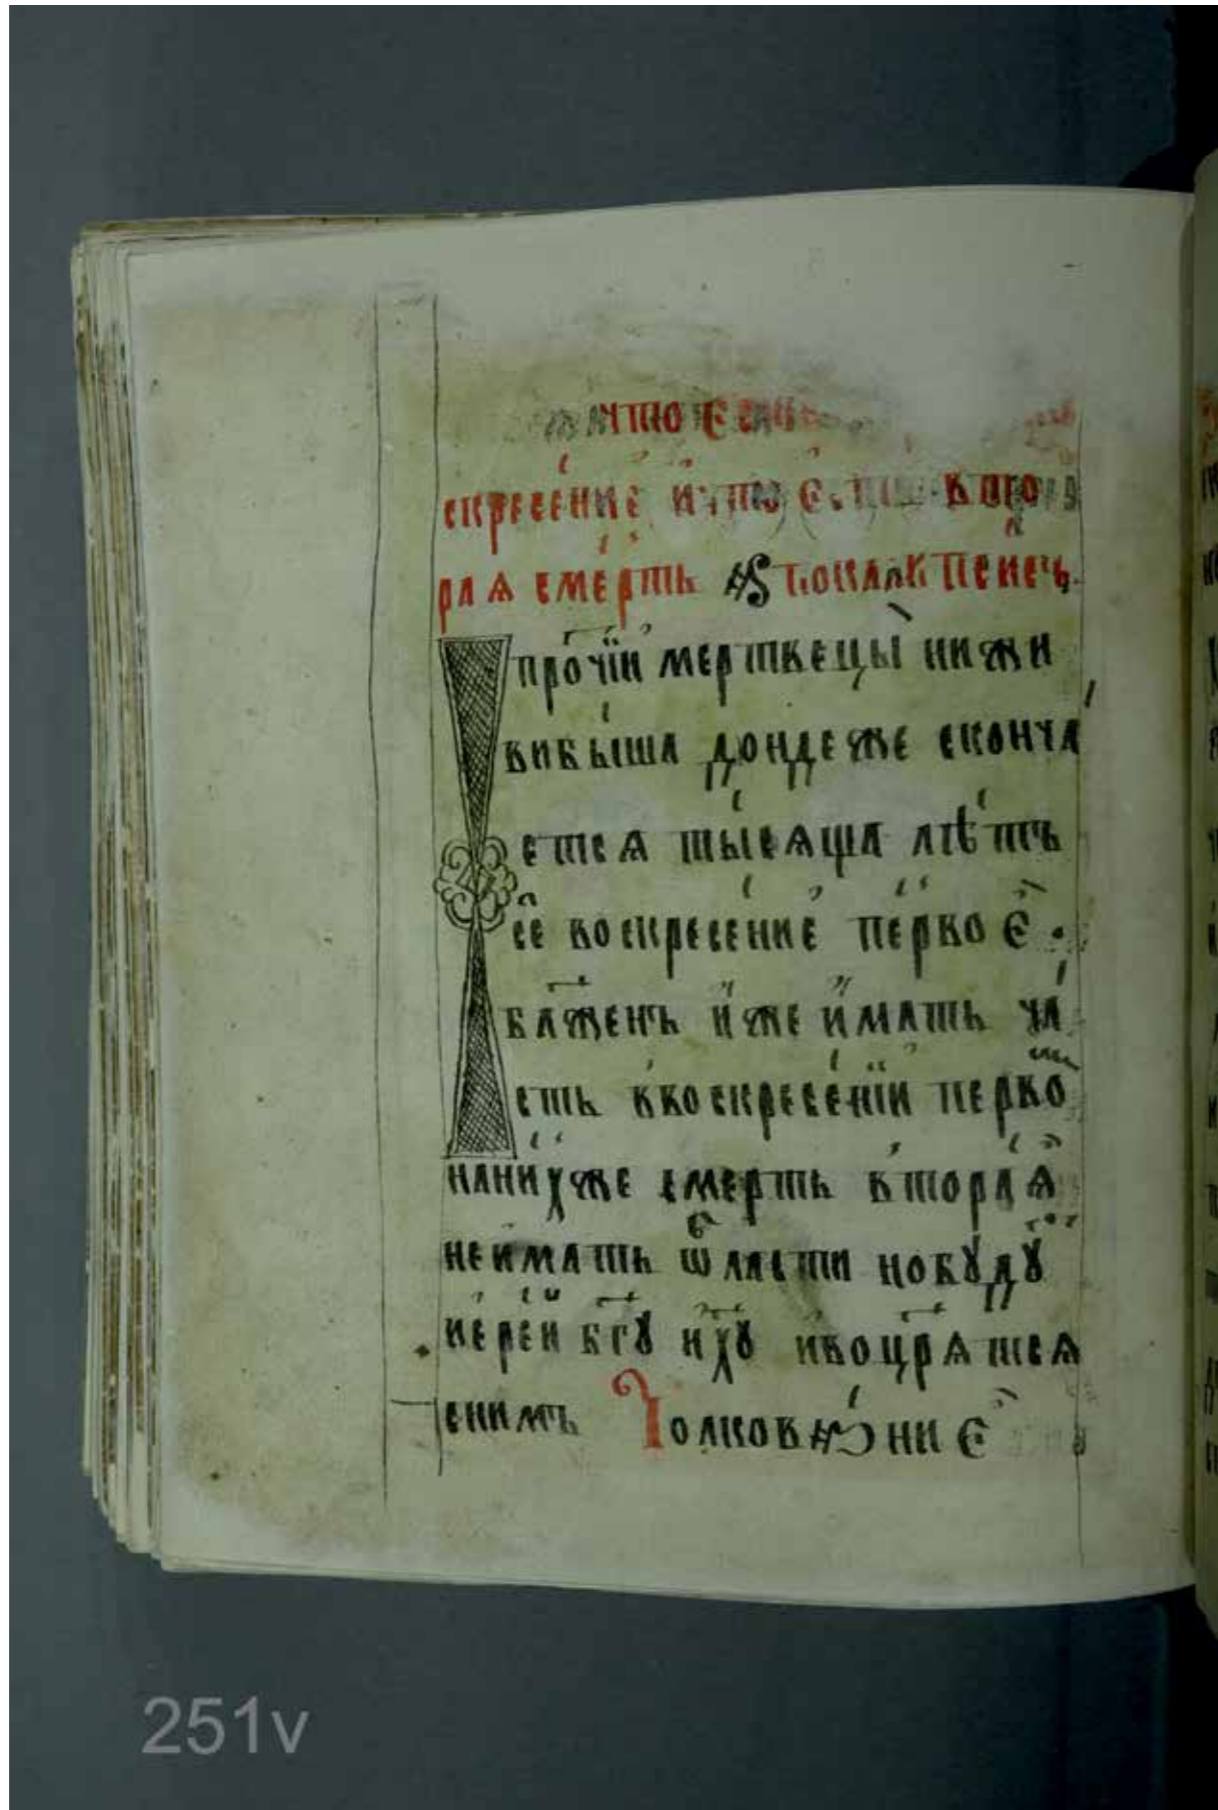 что
скресение и что вто
рая смерть апокалипсисъ.
И прочїи мертвецы нижи
вибыша дондеже сконча
ется тысяща лѣтъ
се воскресение перво є.
блаженъ иже имать ча
сть ввоскресенїи перво
нанихже смерть вторая
неимать ѡбласти нобꙋдꙋт
иереи бгꙋ ихꙋ ивоцрятся
снимъ Толкование
251v